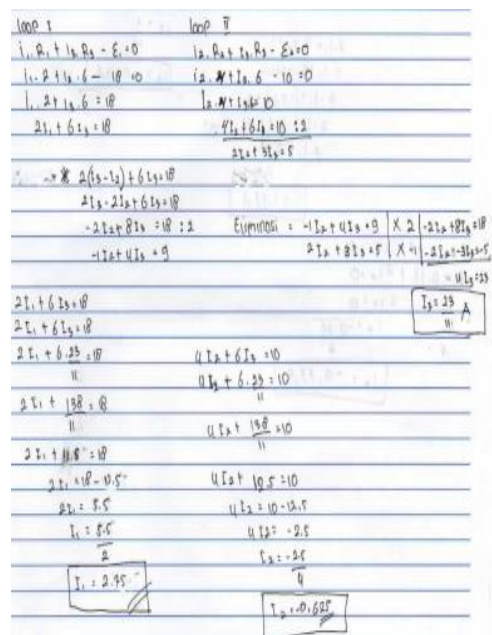 loop I
i₁.R₁ + I₃.R₃ - E₁=0
i₁.2 + I₃.6 - 18 =0
I₁.2 + I₃.6 = 18
2I₁ + 6I₃ = 18
loop II
i₂.R₂ + I₃.R₃ - E₂=0
i₂.4 + I₃.6 - 10 =0
I₂.4 + I₃.6 = 10
4I₂ + 6I₃ = 10 :2
2I₂ + 3I₃ = 5
2(I₃-I₂) + 6I₃ = 18
2I₃ - 2I₂ + 6I₃ = 18
-2I₂ + 8I₃ = 18 :2
-1I₂ + 4I₃ = 9
Eliminasi : -1I₂ + 4I₃ = 9 | X 2 | -2I₂ + 8I₃ = 18
2I₂ + 3I₃ = 5 | X -1 | -2I₂ - 3I₃ = -5
11I₃ = 23
I₃ = 23/11 A
2I₁ + 6I₃ = 18
2I₁ + 6I₃ = 18
2I₁ + 6.23/11 = 18
2I₁ + 138/11 = 18
2I₁ + 12.5 = 18
2I₁ = 18 - 12.5
2I₁ = 5.5
I₁ = 5.5/2
I₁ = 2.75
4I₂ + 6I₃ = 10
4I₂ + 6.23/11 = 10
4I₂ + 138/11 = 10
4I₂ + 12.5 = 10
4I₂ = 10 - 12.5
4I₂ = -2.5
I₂ = -2.5/4
I₂ = -0.625